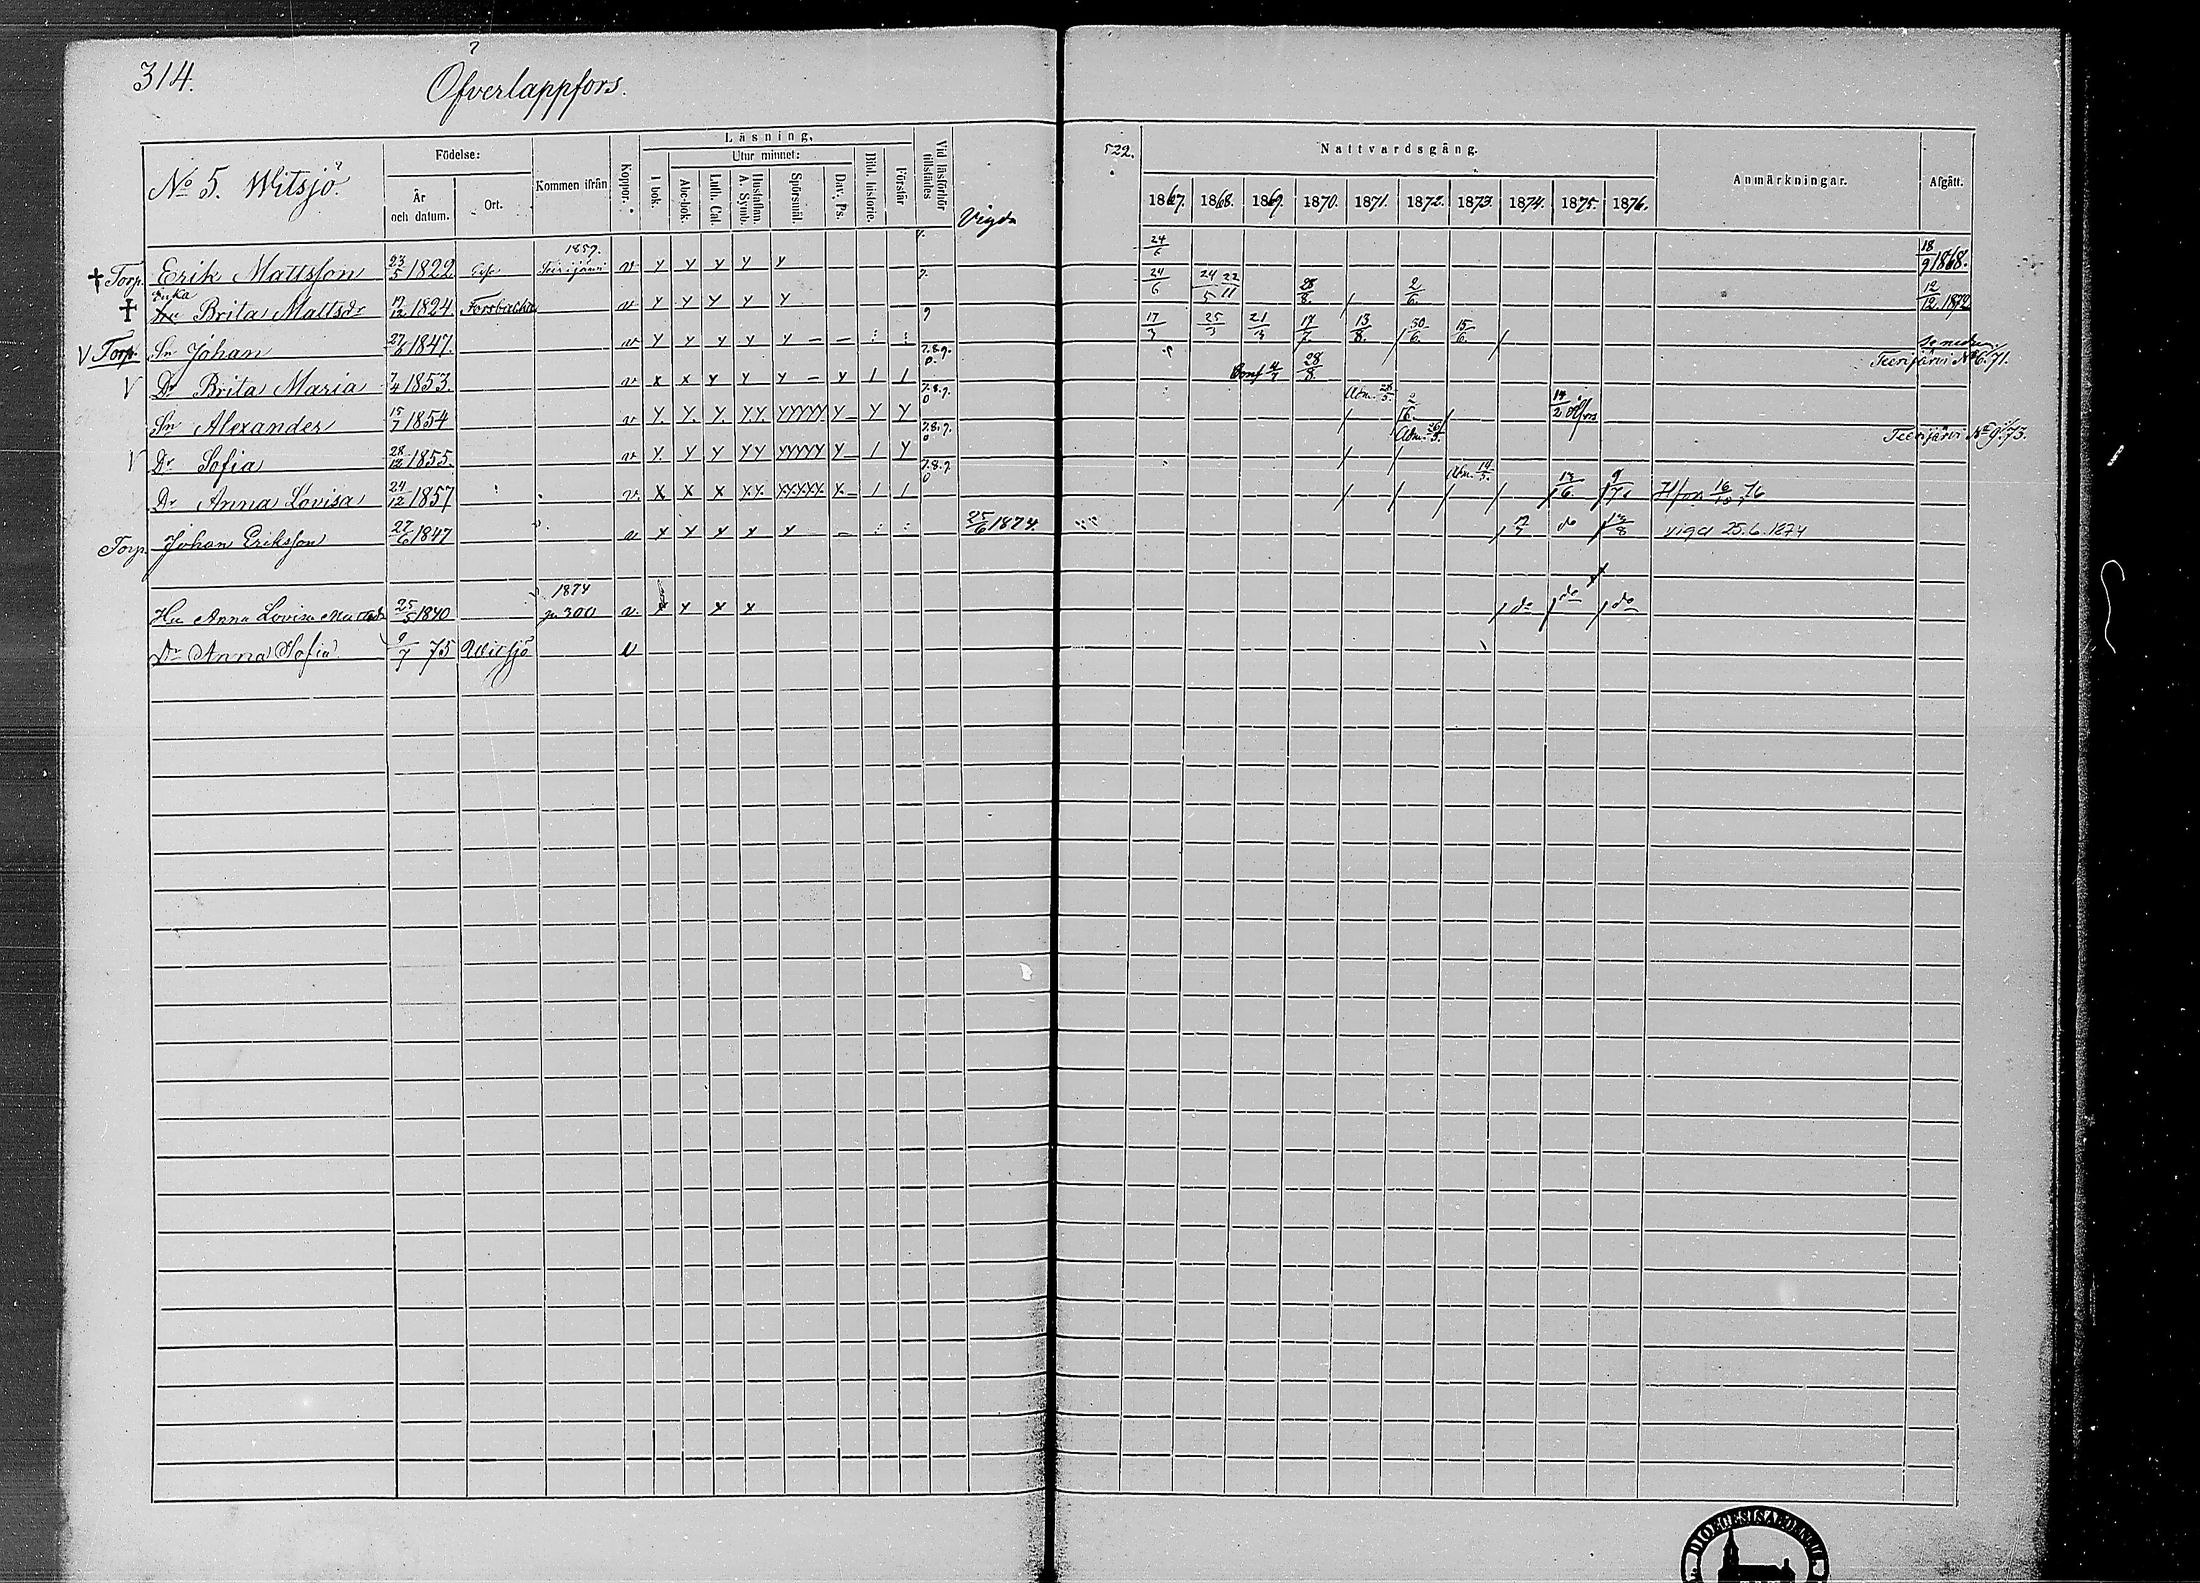 314.
Ofverlappfors.
No 5. Witsjö
Födelse:
År och datum.
Ort.
Kommen ifrån
Koppor.
Läsning,
I bok.
Utur minnet:
Abc-bok.
Luth. Cat.
Hustaflan. A. Symb.
Spörsmål.
Dav. Ps.
Bibl. historie.
Förstår
Vid läsförhör tillstädes
Vigda
522.
Nattvardsgång.
1867. 1868. 1869. 1870. 1871. 1872. 1873. 1874. 1875. 1876.
Anmärkningar.
Afgått.
† Torp. Erik Mattsson 23/5 1822 1859. Teirijärvi v y y y y y 24/6 18/9 1868.
† Enka Brita Mattsdr 17/12 1824 Forsbacka v y y y y y 24/6 24/5 22/11 28/8. / 2/6. 12/12. 1872
V Torp. Sn Johan 27/6 1847. v y y y y y – – : : 9 17/3 25/3 21/3 17/7. 13/8. / 30/6. 15/6. /
V Dr Brita Maria 7/4 1853. v x x y y y – y / / 7.8.9. 0. Conf 28/8. Teerijärvi No 6. 71.
Sn Alexander 15/7 1854 v y. y. y. y.y. yyyyy y – y y 7.8.9. 0 Adm. 28/5. / 2/6.
V Dr Sofia 28/12 1855. v y. y y yy yyyyy y – / y 7.8.9. 0 Adm. 26/5. Teerijärvi No 9. 73.
Dr Anna Lovisa 24/12 1857 v. x x x y.y. y.y.y.y. y. – / / 7.8.9. 0 Adm. 14/5. / 13/6. 9/7. Hfors 16/10 76
Torp. Johan Eriksson 27/6 1847 v x x x x y – – : : 25/6 1874. do 13/8 vigd 25.6.1874
Hu Anna Lovisa 25/5 1840 1874 p. 300 v. x y x y / do / do / do
Dr Anna Sofia 9/7 75 Witsjö v